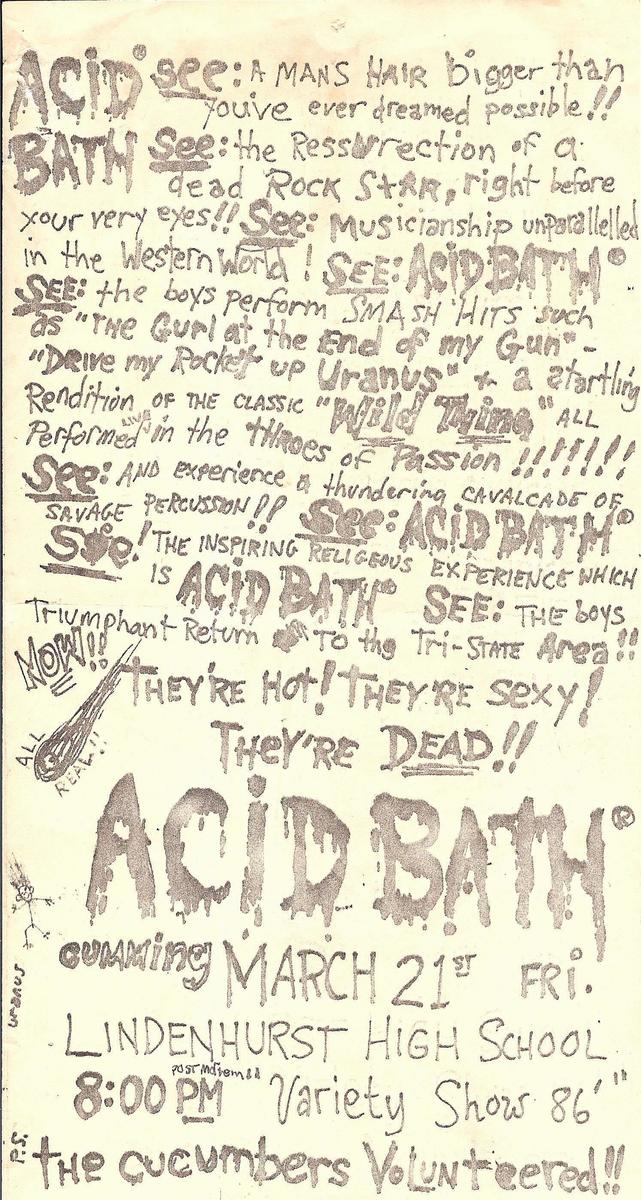 ACID® see: A MANS HAIR bigger than
youive ever dreamed possible!!
BATH See: the Ressurection of a
dead ROCK STAR, right before
your very eyes!! See: Musicianship unparallelled
in the Western World! SEE: ACID BATH®
SEE: the boys perform SMASH HITS such
as "The Gurl at the End of my Gun" -
"Drive my Rocket up Uranus" + a startling
Rendition OF THE CLASSIC "Wild Thing" ALL
Performed LIVE in the tHROes of Passion !!!!!!!
See: AND experience a thundering CAVALCADE OF
SAVAGE PERCUSSION!! See: ACID BATH®
See! THE INSPIRING RELIGEOUS EXPERIENCE WHICH
IS ACID BATH® SEE: THE boys
Triumphant Return To the Tri-STATE Area!!
NOW!!
THEY'RE HOt! THEY'RE sexy!
ALL REAL!!
THEY'RE DEAD!!
ACID BATH®
cumming MARCH 21ST FRI.
uranus
LINDENHURST HIGH SCHOOL
8:00 PM Variety Show 86'"
P.S. tHe cucumbers VOLUNteered!!